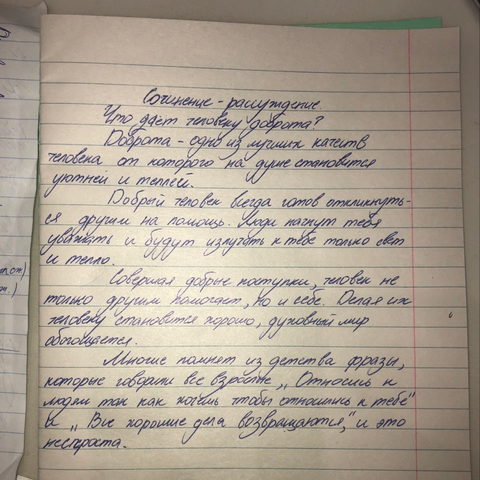 Сочинение - рассуждение.
Что дает человеку доброта?
Доброта - одно из лучших качеств
человека от которого на душе становится
уютней и теплей.
Добрый человек всегда готов откликнуть-
ся другим на помощь. Люди начнут тебя
уважать и будут излучать к тебе только свет
и тепло.
Совершая добрые поступки, человек не
только другим помогает, но и себе. Делая их
человеку становится хорошо, духовный мир
обогощается.
Многие помнят из детства фразы,
которые говорили все взрослые „Относись к
людям так как хочешь чтобы относились к тебе"
и „Все хорошие дела возвращаются," и это
неспроста.